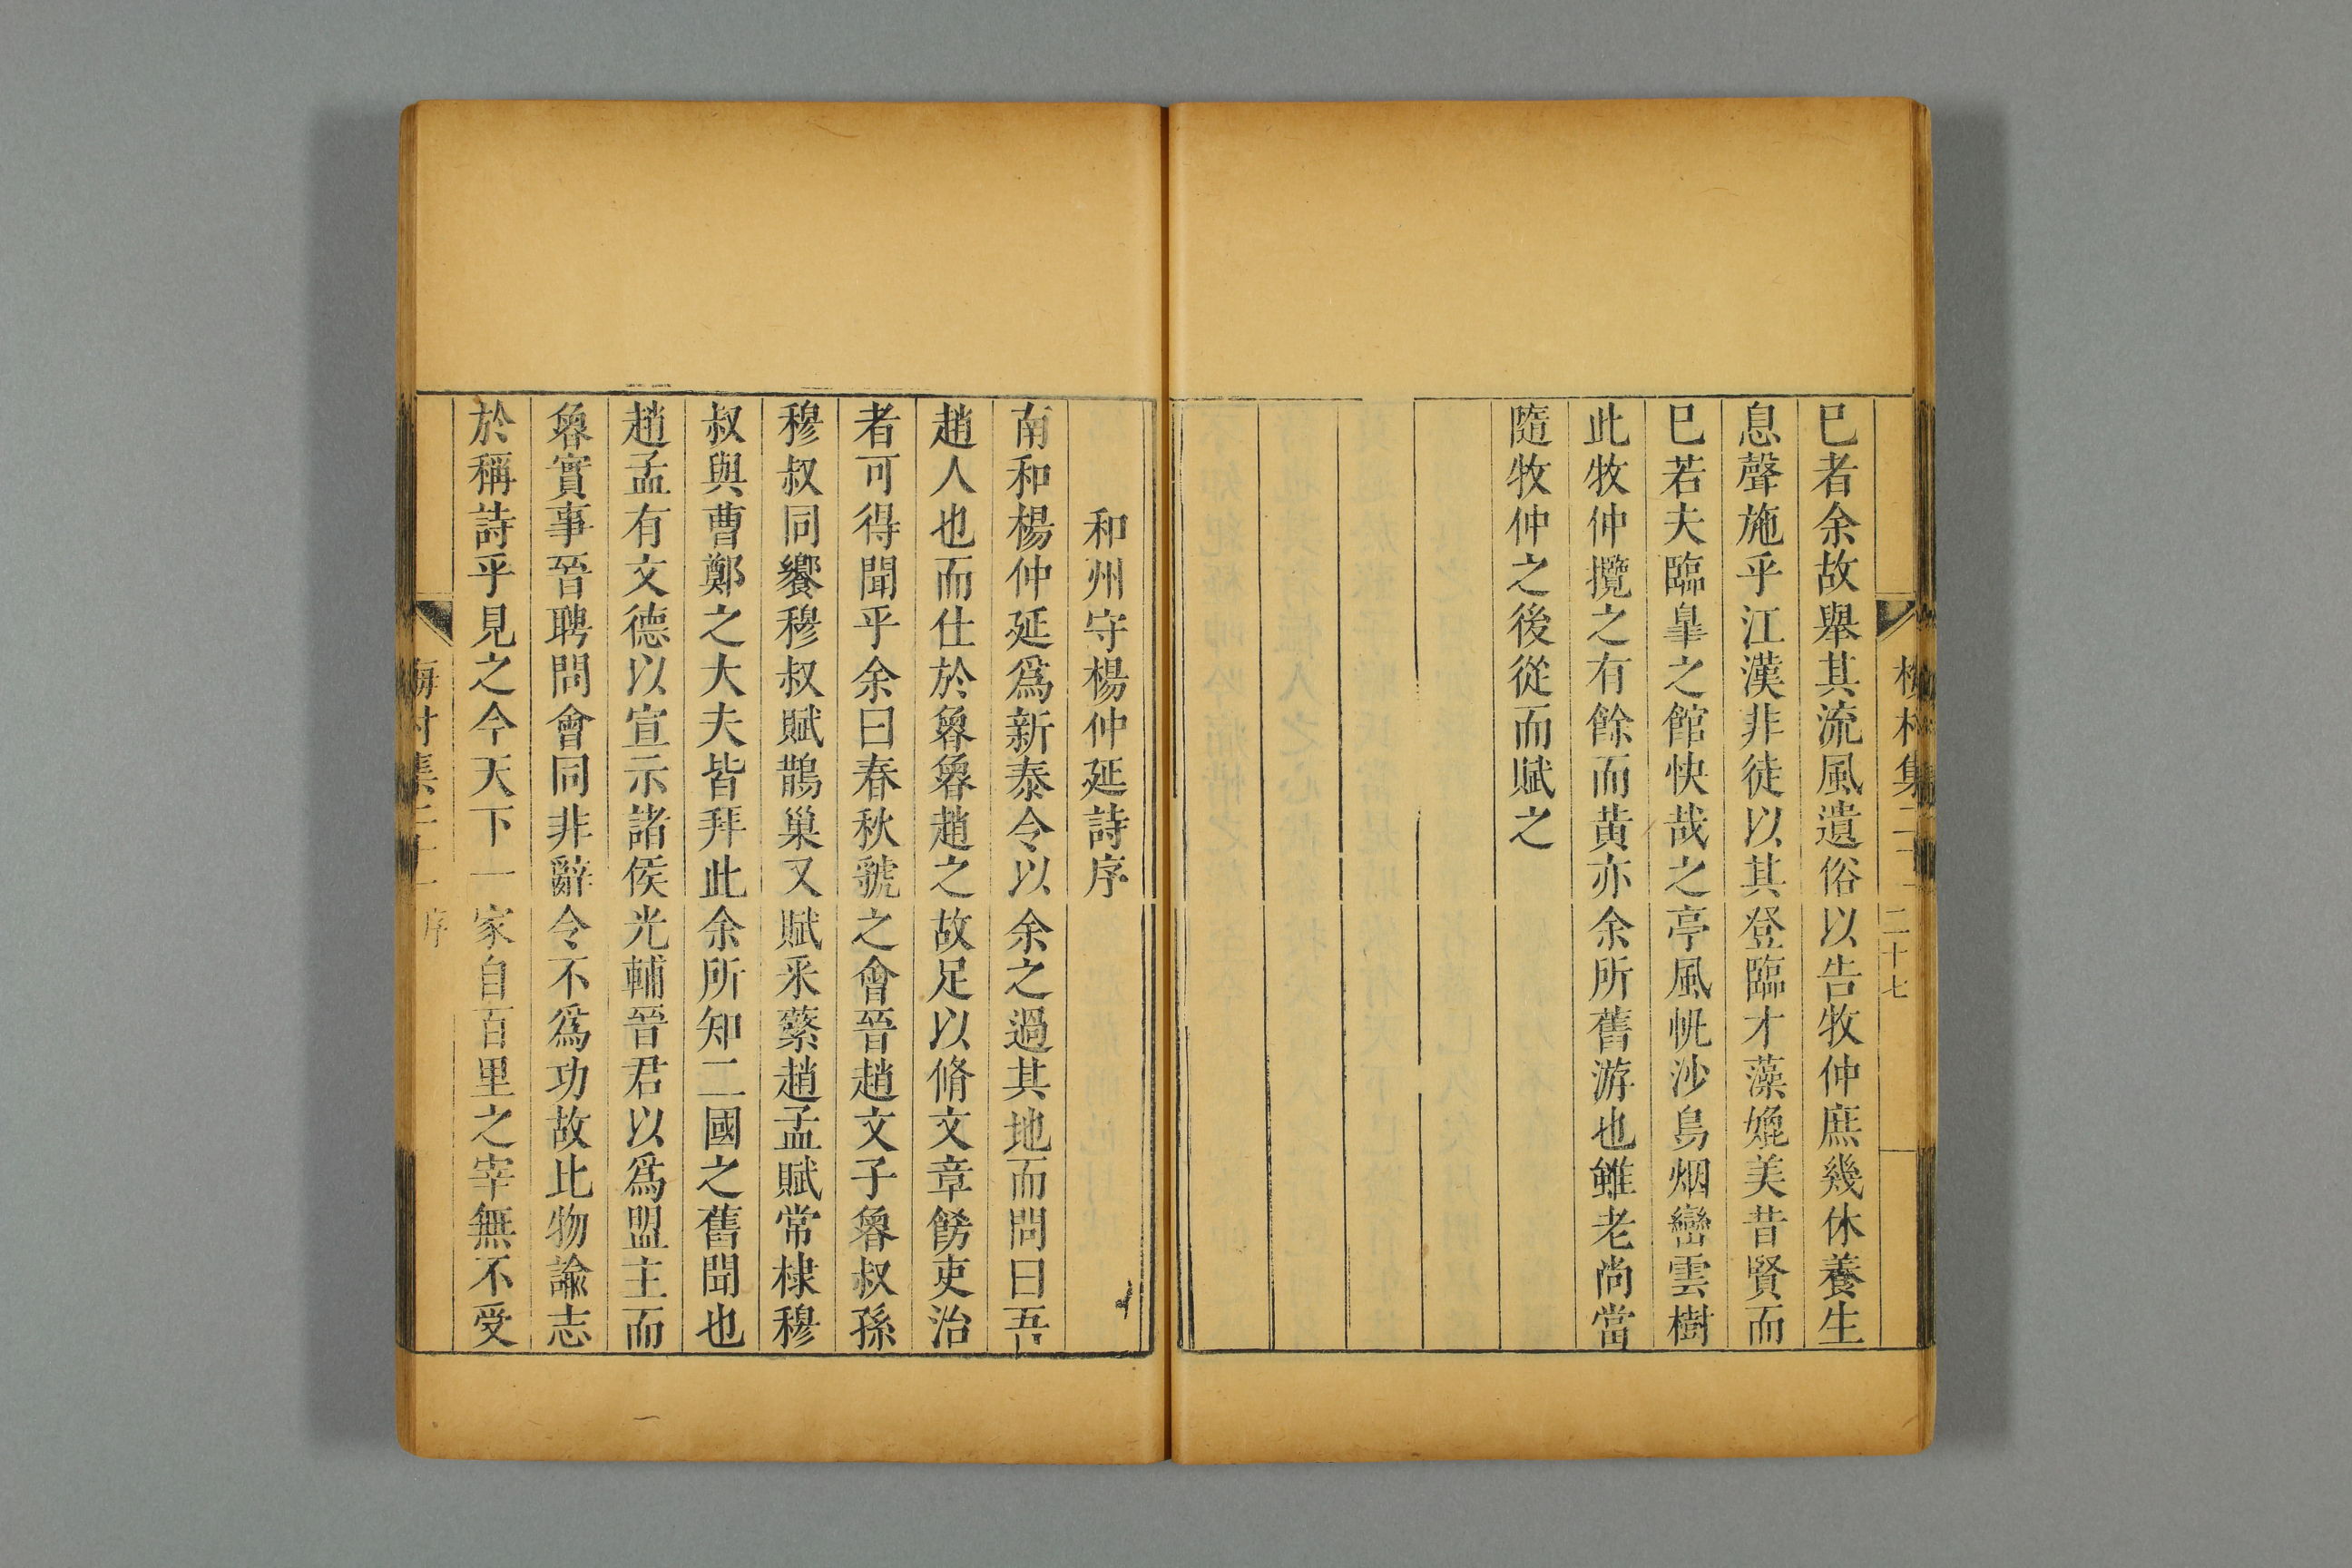 梅村集二十
二十七
巳者余故舉其流風遺俗以告牧仲庶幾休養生
息聲施乎江漢非徒以其登臨才藻媲美昔賢而
巳若夫臨臯之館快哉之亭風帆沙鳥烟巒雲樹
此牧仲攬之有餘而黄亦余所舊游也雖老尚當
隨牧仲之後從而賦之
和州守楊仲延詩序
南和楊仲延爲新泰令以余之過其地而問曰吾
趙人也而仕於魯魯趙之故足以脩文章餝吏治
者可得聞乎余曰春秋虢之會晉趙文子魯叔孫
穆叔同饗穆叔賦鵲巢又賦采蘩趙孟賦常棣穆
叔與曹鄭之大夫皆拜此余所知二國之舊聞也
趙孟有文德以宣示諸侯光輔晉君以爲盟主而
魯實事晉聘問會同非辭令不爲功故比物諭志
於稱詩乎見之今天下一家自百里之宰無不受
梅村集二十一 序